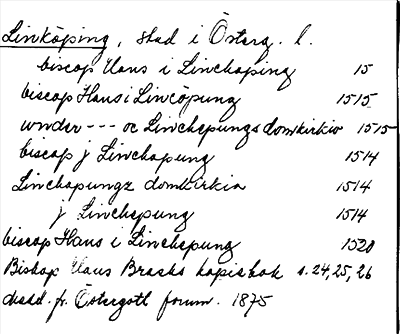 Linköping, stad i Österg. l.
biscop Hans i Linchöping 15
biscop Hans i Lincöpung 1515
wnder --- oc Linchepungs domkirkio 1515
biscap j Linchopung 1514
Linchopungz domkirkia 1514
j Linchepung 1514
biscop Hans i Linchepung 1520
Biskop Hans Brasks kopiebok s. 24, 25, 26
disad. fr. Östergötl fornm. 1875